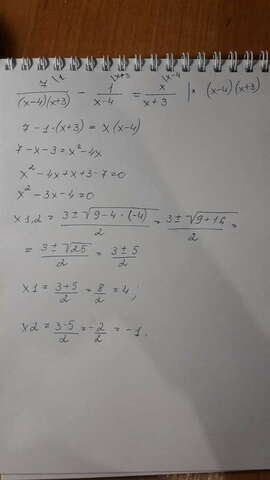 7^{\1}/((x-4)(x+3)) - 1^{\x+3}/(x-4) = x^{\x-4}/(x+3) |× (x-4)(x+3)
7-1·(x+3) = x(x-4)
7-x-3=x²-4x
x²-4x+x+3-7=0
x²-3x-4=0
x1,2 = (3±√(9-4·(-4)))/2 = (3±√(9+16))/2 =
= (3±√25)/2 = (3±5)/2
x1 = (3+5)/2 = 8/2 = 4;
x2 = (3-5)/2 = -2/2 = -1.